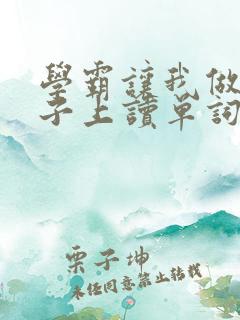 學霸讓我做
子上讀單詞
栗子坤
未经同意禁止转载